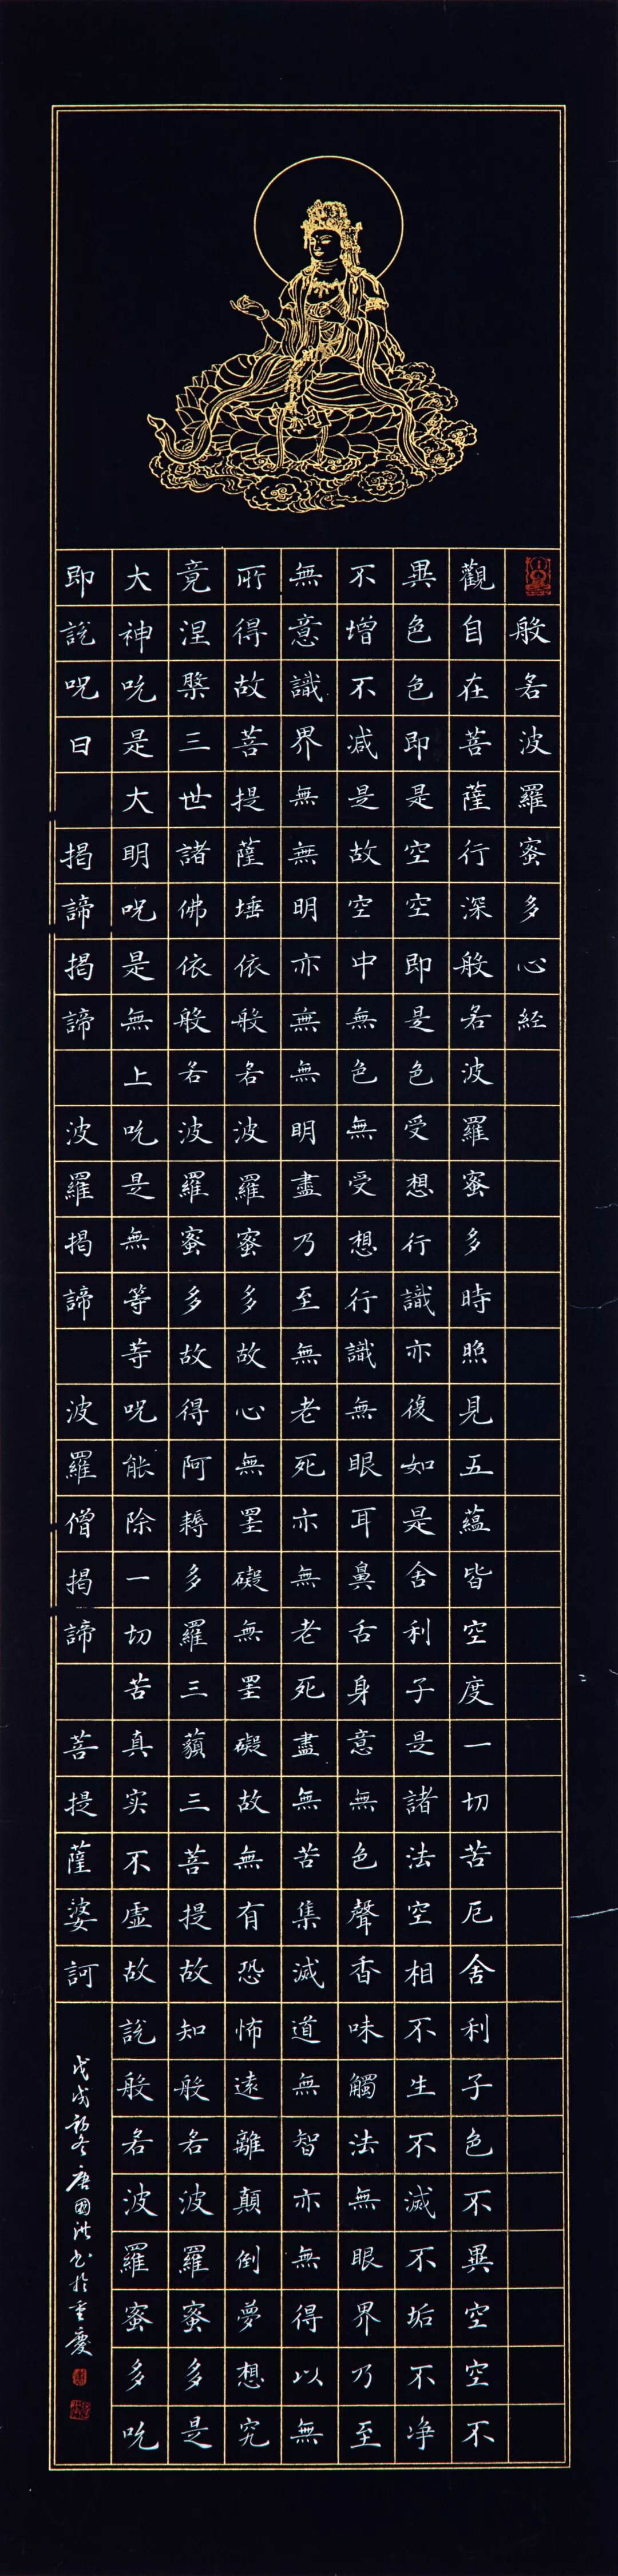 般若波羅蜜多心經
觀自在菩薩行深般若波羅蜜多時照見五蘊皆空度一切苦厄舍利子色不異空空不
異色色即是空空即是色受想行識亦復如是舍利子是諸法空相不生不滅不垢不净
不增不减是故空中無色無受想行識無眼耳鼻舌身意無色聲香味觸法無眼界乃至
無意識界無無明亦無無明盡乃至無老死亦無老死盡無苦集滅道無智亦無得以無
所得故菩提薩埵依般若波羅蜜多故心無罣礙無罣礙故無有恐怖遠離顛倒夢想究
竟涅槃三世諸佛依般若波羅蜜多故得阿耨多羅三藐三菩提故知般若波羅蜜多是
大神呪是大明呪是無上呪是無等等呪能除一切苦真实不虛故說般若波羅蜜多呪
即說呪曰 揭諦揭諦 波羅揭諦 波羅僧揭諦 菩提薩婆訶
戊戌初冬唐國洪书於重慶